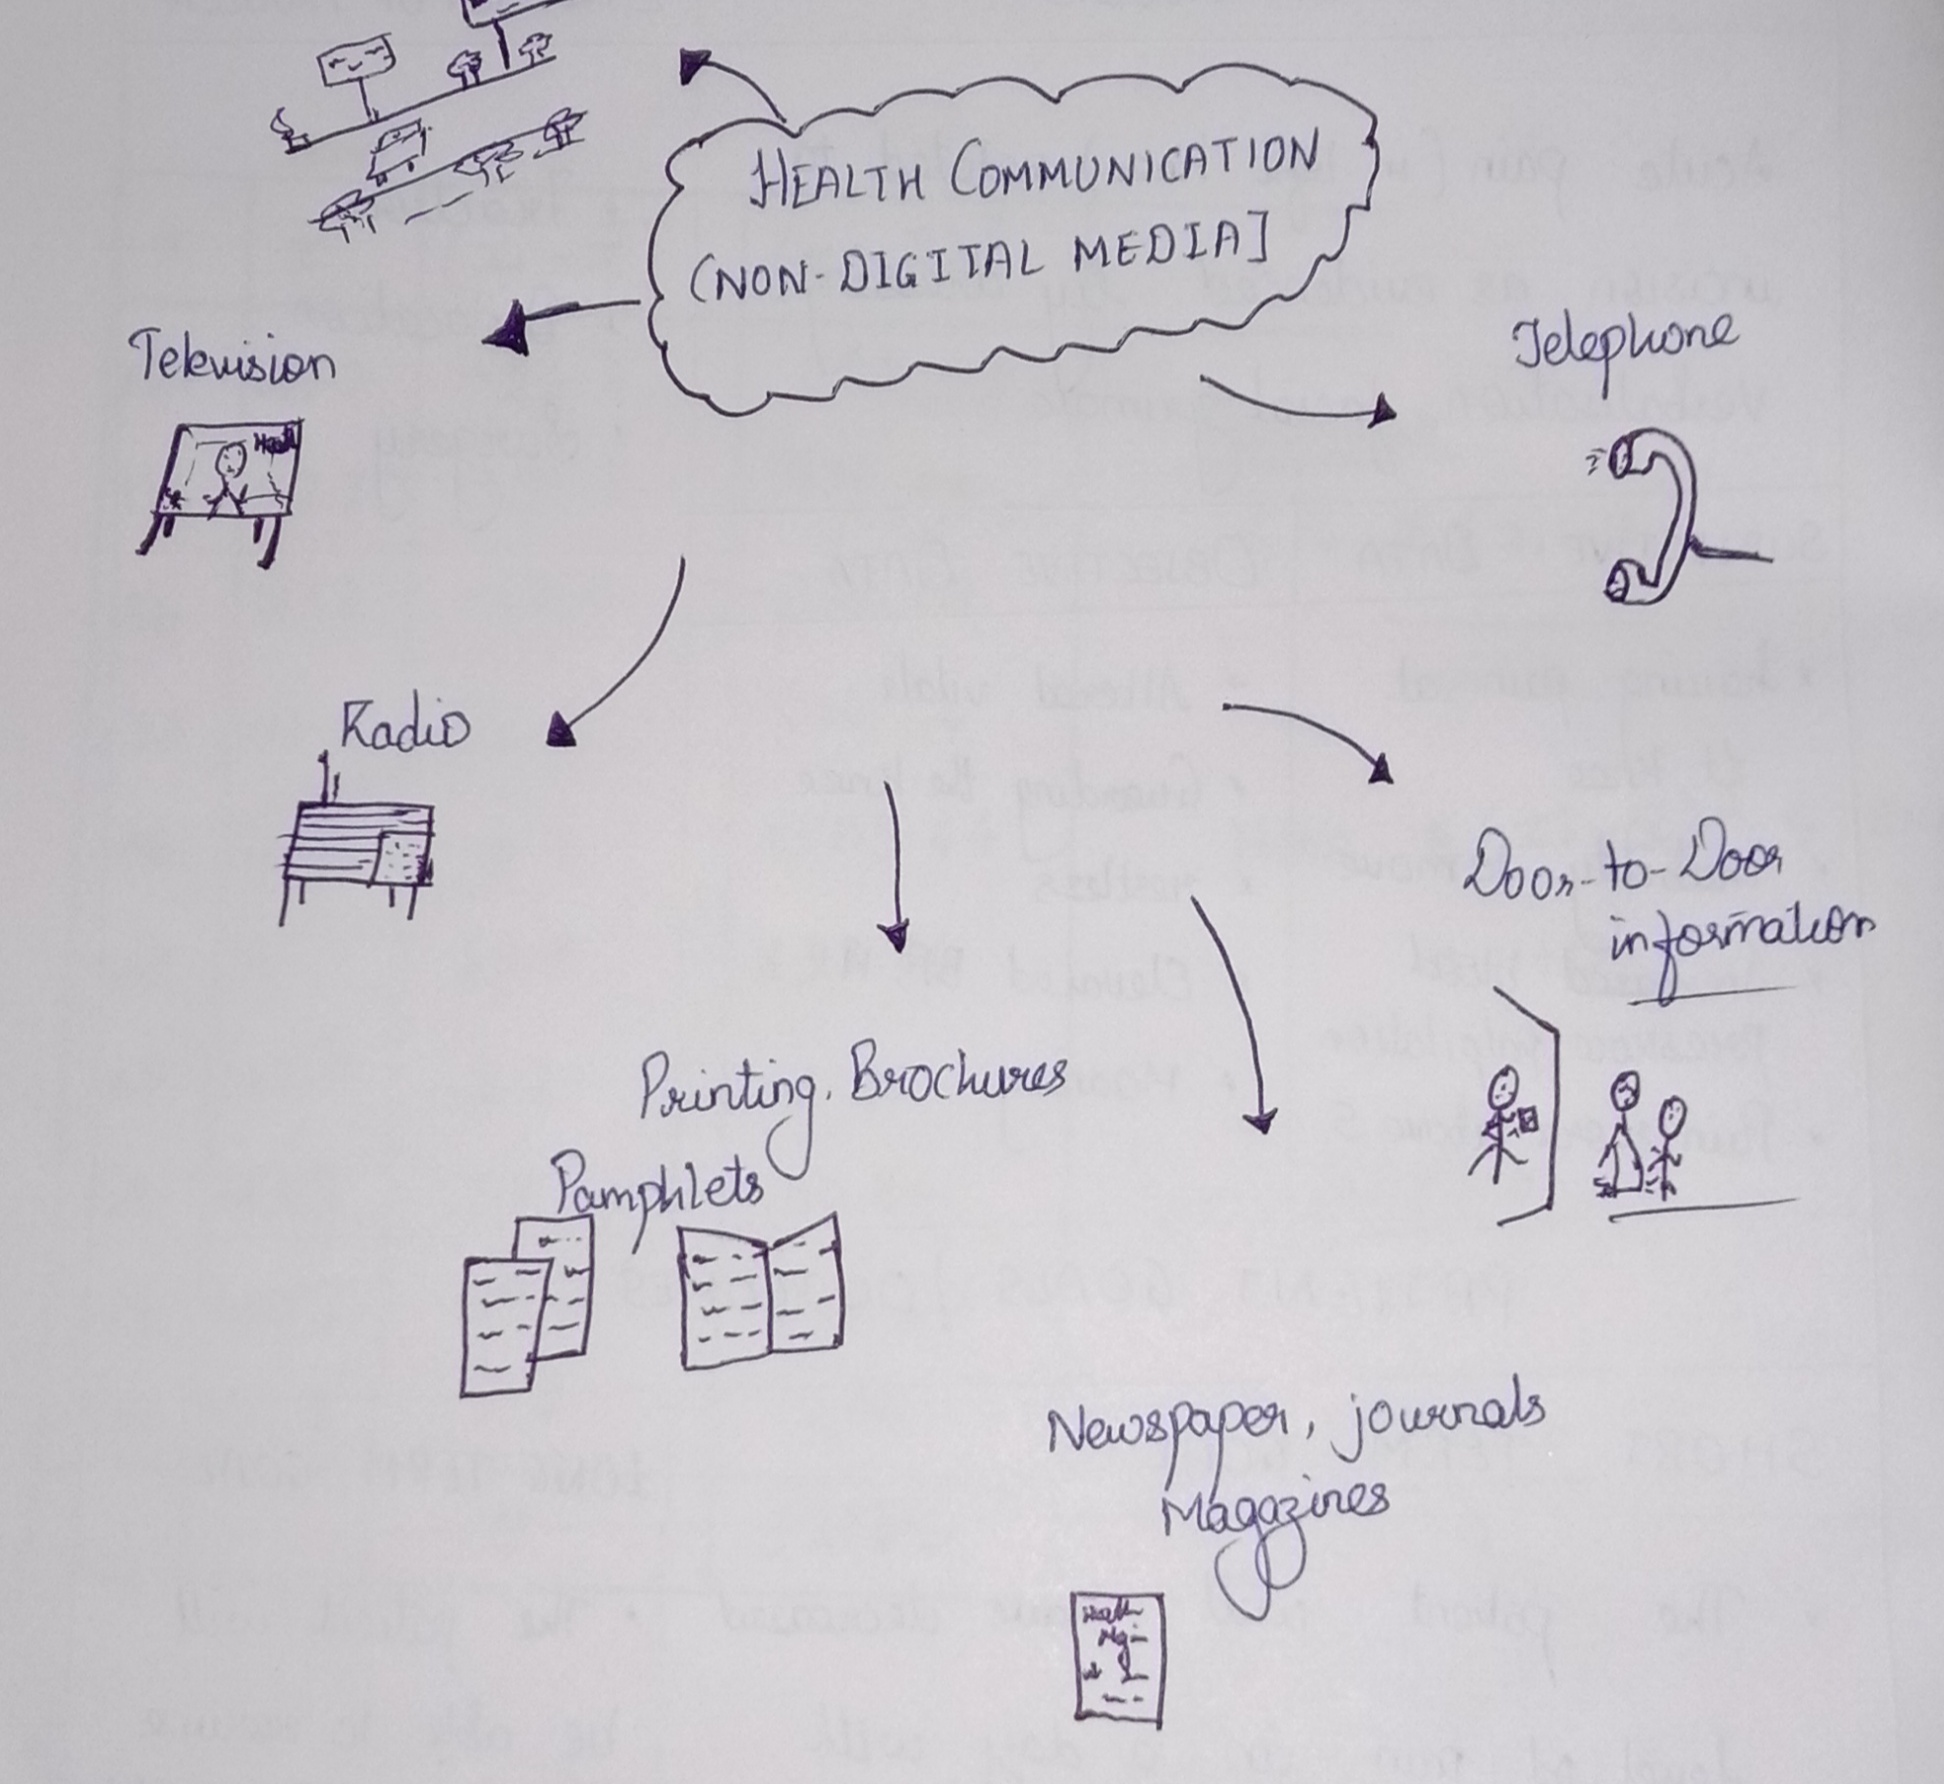 HEALTH COMMUNICATION
(NON-DIGITAL MEDIA]
Television
Telephone
Radio
Door-to-Door
information
Printing, Brochures
Pamphlets
Newspaper, journals
Magazines